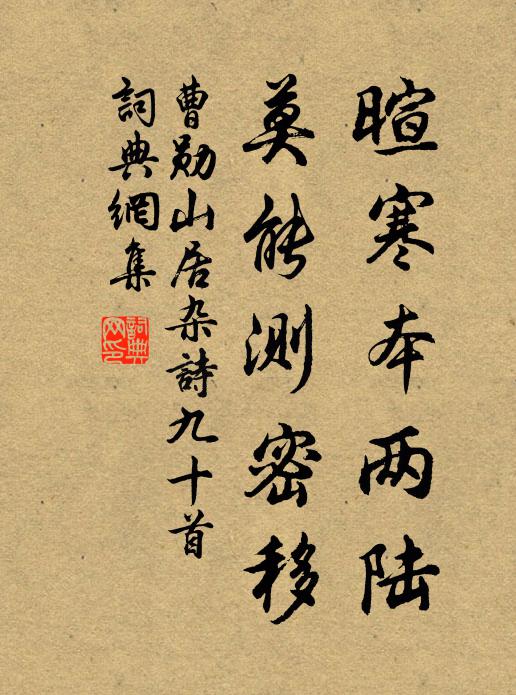 暄寒本两陆
莫能测密移
曹勋山居杂詩九十首
詞典網集
詞典网印